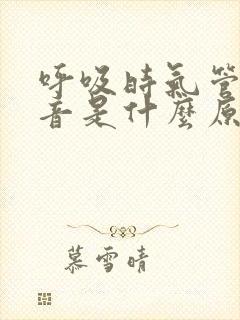 呼吸时氣管
音是什麼原
慕雪晴